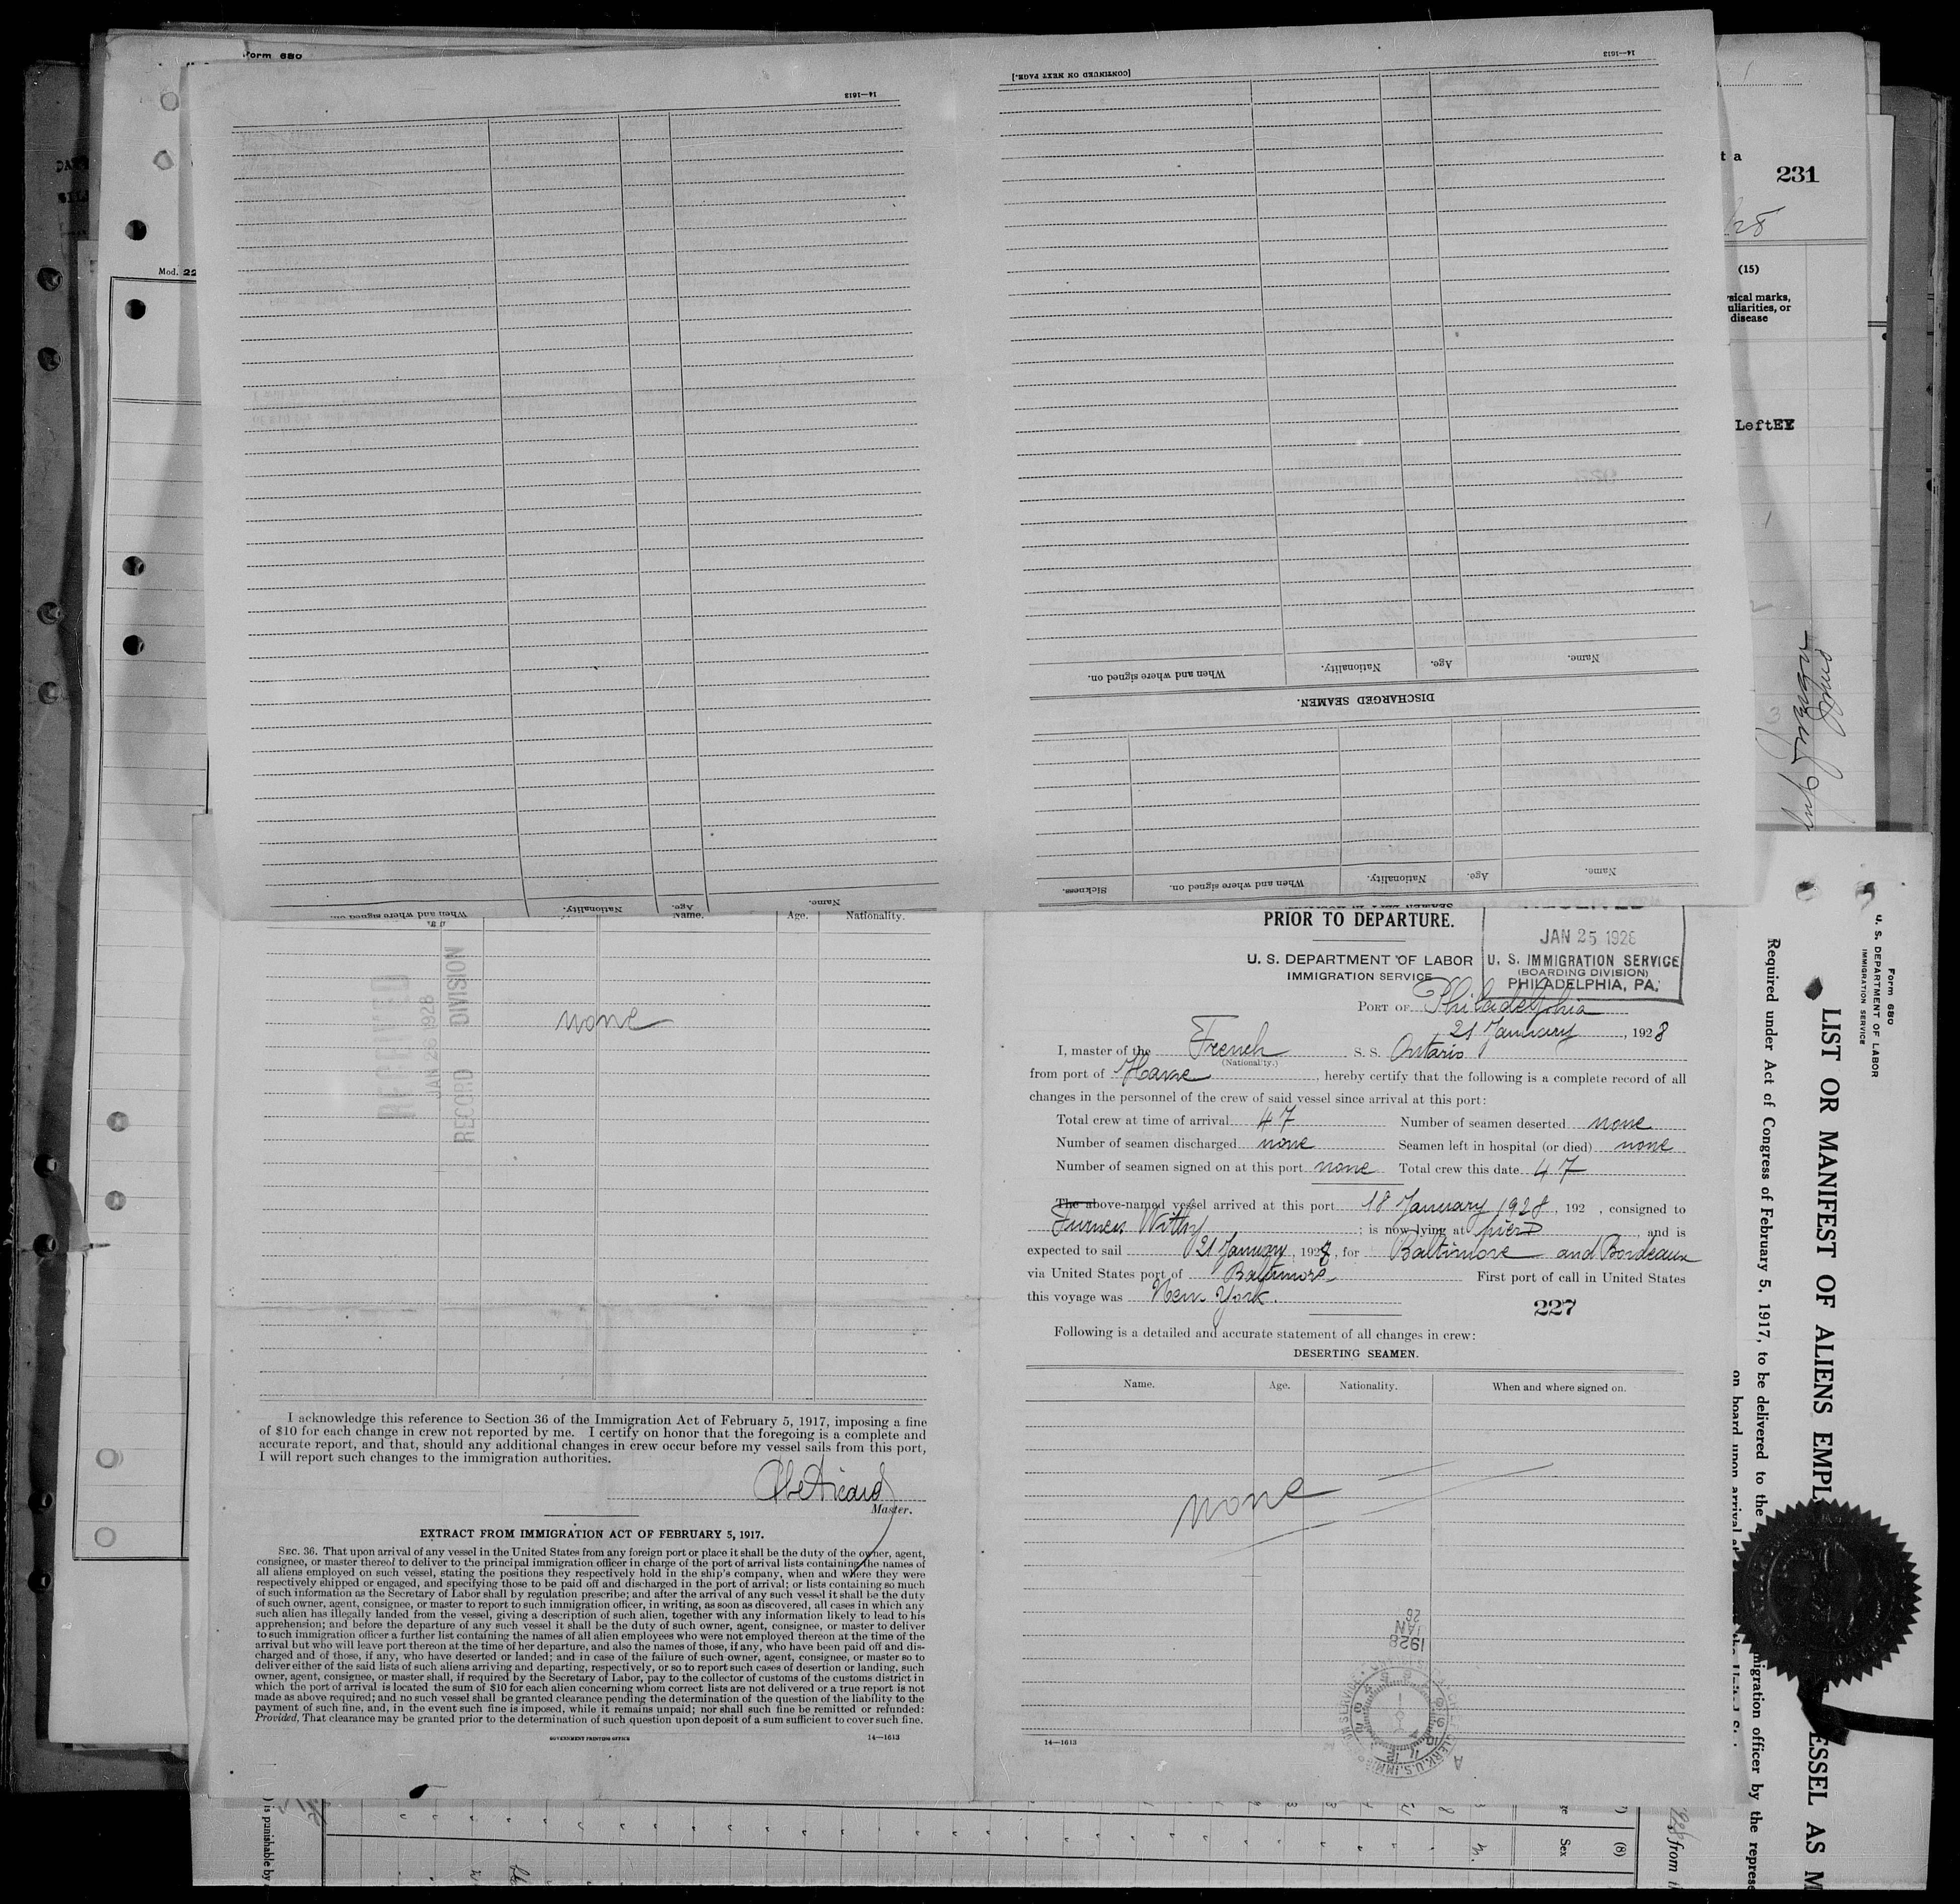 Form 680
Mod. 22
14—1613
[CONTINUED ON NEXT PAGE.]
14—1613
231
(15)
disease
Left EY
Name.
Age.
Nationality.
When and where signed on.
DISCHARGED SEAMEN.
Name.
Age.
Nationality.
When and where signed on.
Sickness.
Name.
Age.
Nationality.
When and where signed on.
Name.
Age.
Nationality.
none
RECEIVED
JAN 26 1928
RECORD DIVISION
I acknowledge this reference to Section 36 of the Immigration Act of February 5, 1917, imposing a fine
of $10 for each change in crew not reported by me. I certify on honor that the foregoing is a complete and
accurate report, and that, should any additional changes in crew occur before my vessel sails from this port,
I will report such changes to the immigration authorities.
Master.
EXTRACT FROM IMMIGRATION ACT OF FEBRUARY 5, 1917.
SEC. 36. That upon arrival of any vessel in the United States from any foreign port or place it shall be the duty of the owner, agent,
consignee, or master thereof to deliver to the principal immigration officer in charge of the port of arrival lists containing the names of
all aliens employed on such vessel, stating the positions they respectively hold in the ship's company, when and where they were
respectively shipped or engaged, and specifying those to be paid off and discharged in the port of arrival; or lists containing so much
of such information as the Secretary of Labor shall by regulation prescribe; and after the arrival of any such vessel it shall be the duty
of such owner, agent, consignee, or master to report to such immigration officer, in writing, as soon as discovered, all cases in which any
such alien has illegally landed from the vessel, giving a description of such alien, together with any information likely to lead to his
apprehension; and before the departure of any such vessel it shall be the duty of such owner, agent, consignee, or master to deliver
to such immigration officer a further list containing the names of all alien employees who were not employed thereon at the time of the
arrival but who will leave port thereon at the time of her departure, and also the names of those, if any, who have been paid off and dis-
charged and of those, if any, who have deserted or landed; and in case of the failure of such owner, agent, consignee, or master so to
deliver either of the said lists of such aliens arriving and departing, respectively, or so to report such cases of desertion or landing, such
owner, agent, consignee, or master shall, if required by the Secretary of Labor, pay to the collector of customs of the customs district in
which the port of arrival is located the sum of $10 for each alien concerning whom correct lists are not delivered or a true report is not
made as above required; and no such vessel shall be granted clearance pending the determination of the question of the liability to the
payment of such fine, and, in the event such fine is imposed, while it remains unpaid; nor shall such fine be remitted or refunded:
Provided, That clearance may be granted prior to the determination of such question upon deposit of a sum sufficient to cover such fine.
GOVERNMENT PRINTING OFFICE
14—1613
PRIOR TO DEPARTURE.
U. S. DEPARTMENT OF LABOR
IMMIGRATION SERVICE
JAN 25 1928
U. S. IMMIGRATION SERVICE
(BOARDING DIVISION)
PHILADELPHIA, PA.
PORT OF Philadelphia
21 January, 1928
I, master of the French S. S. Ontario
(Nationality.)
from port of Havre, hereby certify that the following is a complete record of all
changes in the personnel of the crew of said vessel since arrival at this port:
Total crew at time of arrival 47 Number of seamen deserted none
Number of seamen discharged none Seamen left in hospital (or died) none
Number of seamen signed on at this port none Total crew this date 47
The above-named vessel arrived at this port 18 January 1928, 192 , consigned to
Furness Withy; is now lying at pier D, and is
expected to sail 21 January, 1928, for Baltimore and Bordeaux
via United States port of Baltimore First port of call in United States
this voyage was New York.
227
Following is a detailed and accurate statement of all changes in crew:
DESERTING SEAMEN.
Name. Age. Nationality. When and where signed on.
none
1928
JAN
26
14—1613
Form 680
U. S. DEPARTMENT OF LABOR
IMMIGRATION SERVICE
LIST OR MANIFEST OF ALIENS EMPL
ESSEL AS M
Required under Act of Congress of February 5, 1917, to be delivered to the
migration officer by the represe
on board upon arrival
) is punishable by
Sex
(8)
from